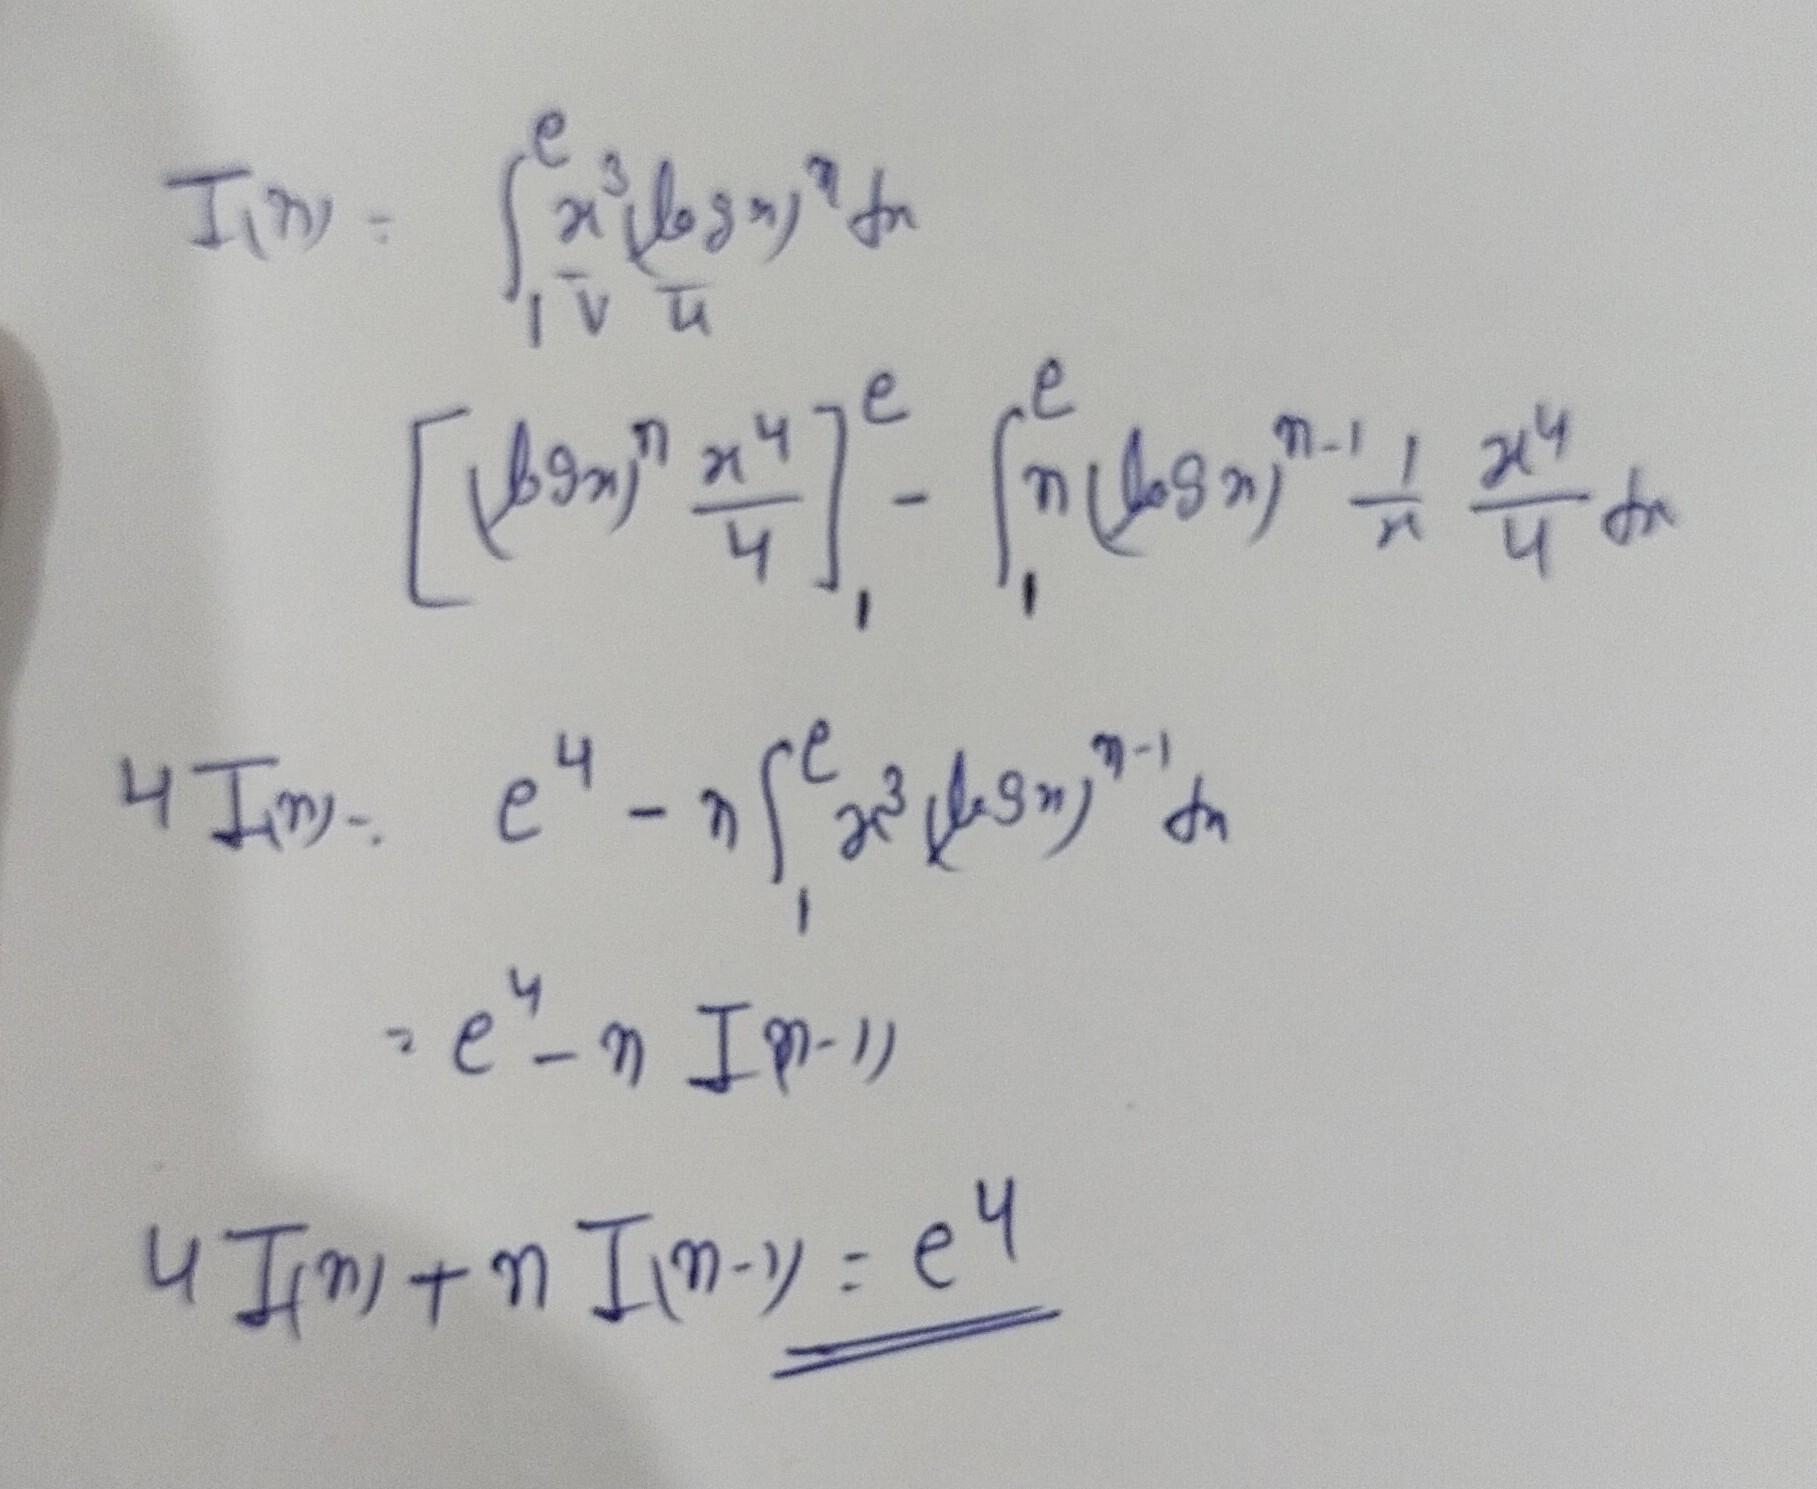 I(n) = ∫₁ᵉ x³ (log x)ⁿ dx
v u
[(log x)ⁿ x⁴/4]₁ᵉ - ∫₁ᵉ n (log x)ⁿ⁻¹ 1/x x⁴/4 dx
4 I(n) = e⁴ - n ∫₁ᵉ x³ (log x)ⁿ⁻¹ dx
= e⁴ - n I(n-1)
4 I(n) + n I(n-1) = e⁴